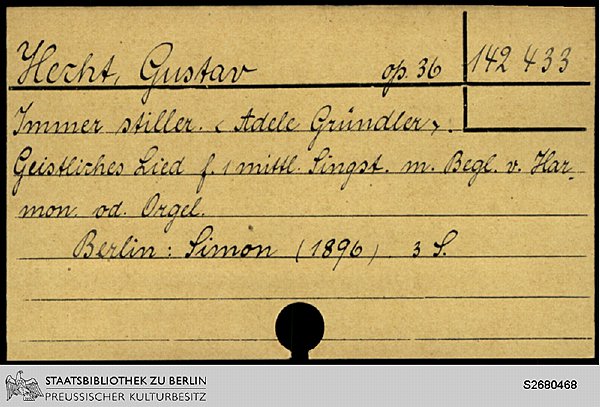 Hecht, Gustav op. 36 142 433
Immer stiller. < Adele Gründler >.
Geistliches Lied f. 1 mittl. Singst. m. Begl. v. Har-
mon. od. Orgel.
Berlin: Simon (1896). 3 S.
STAATSBIBLIOTHEK ZU BERLIN
PREUSSISCHER KULTURBESITZ
S2680468